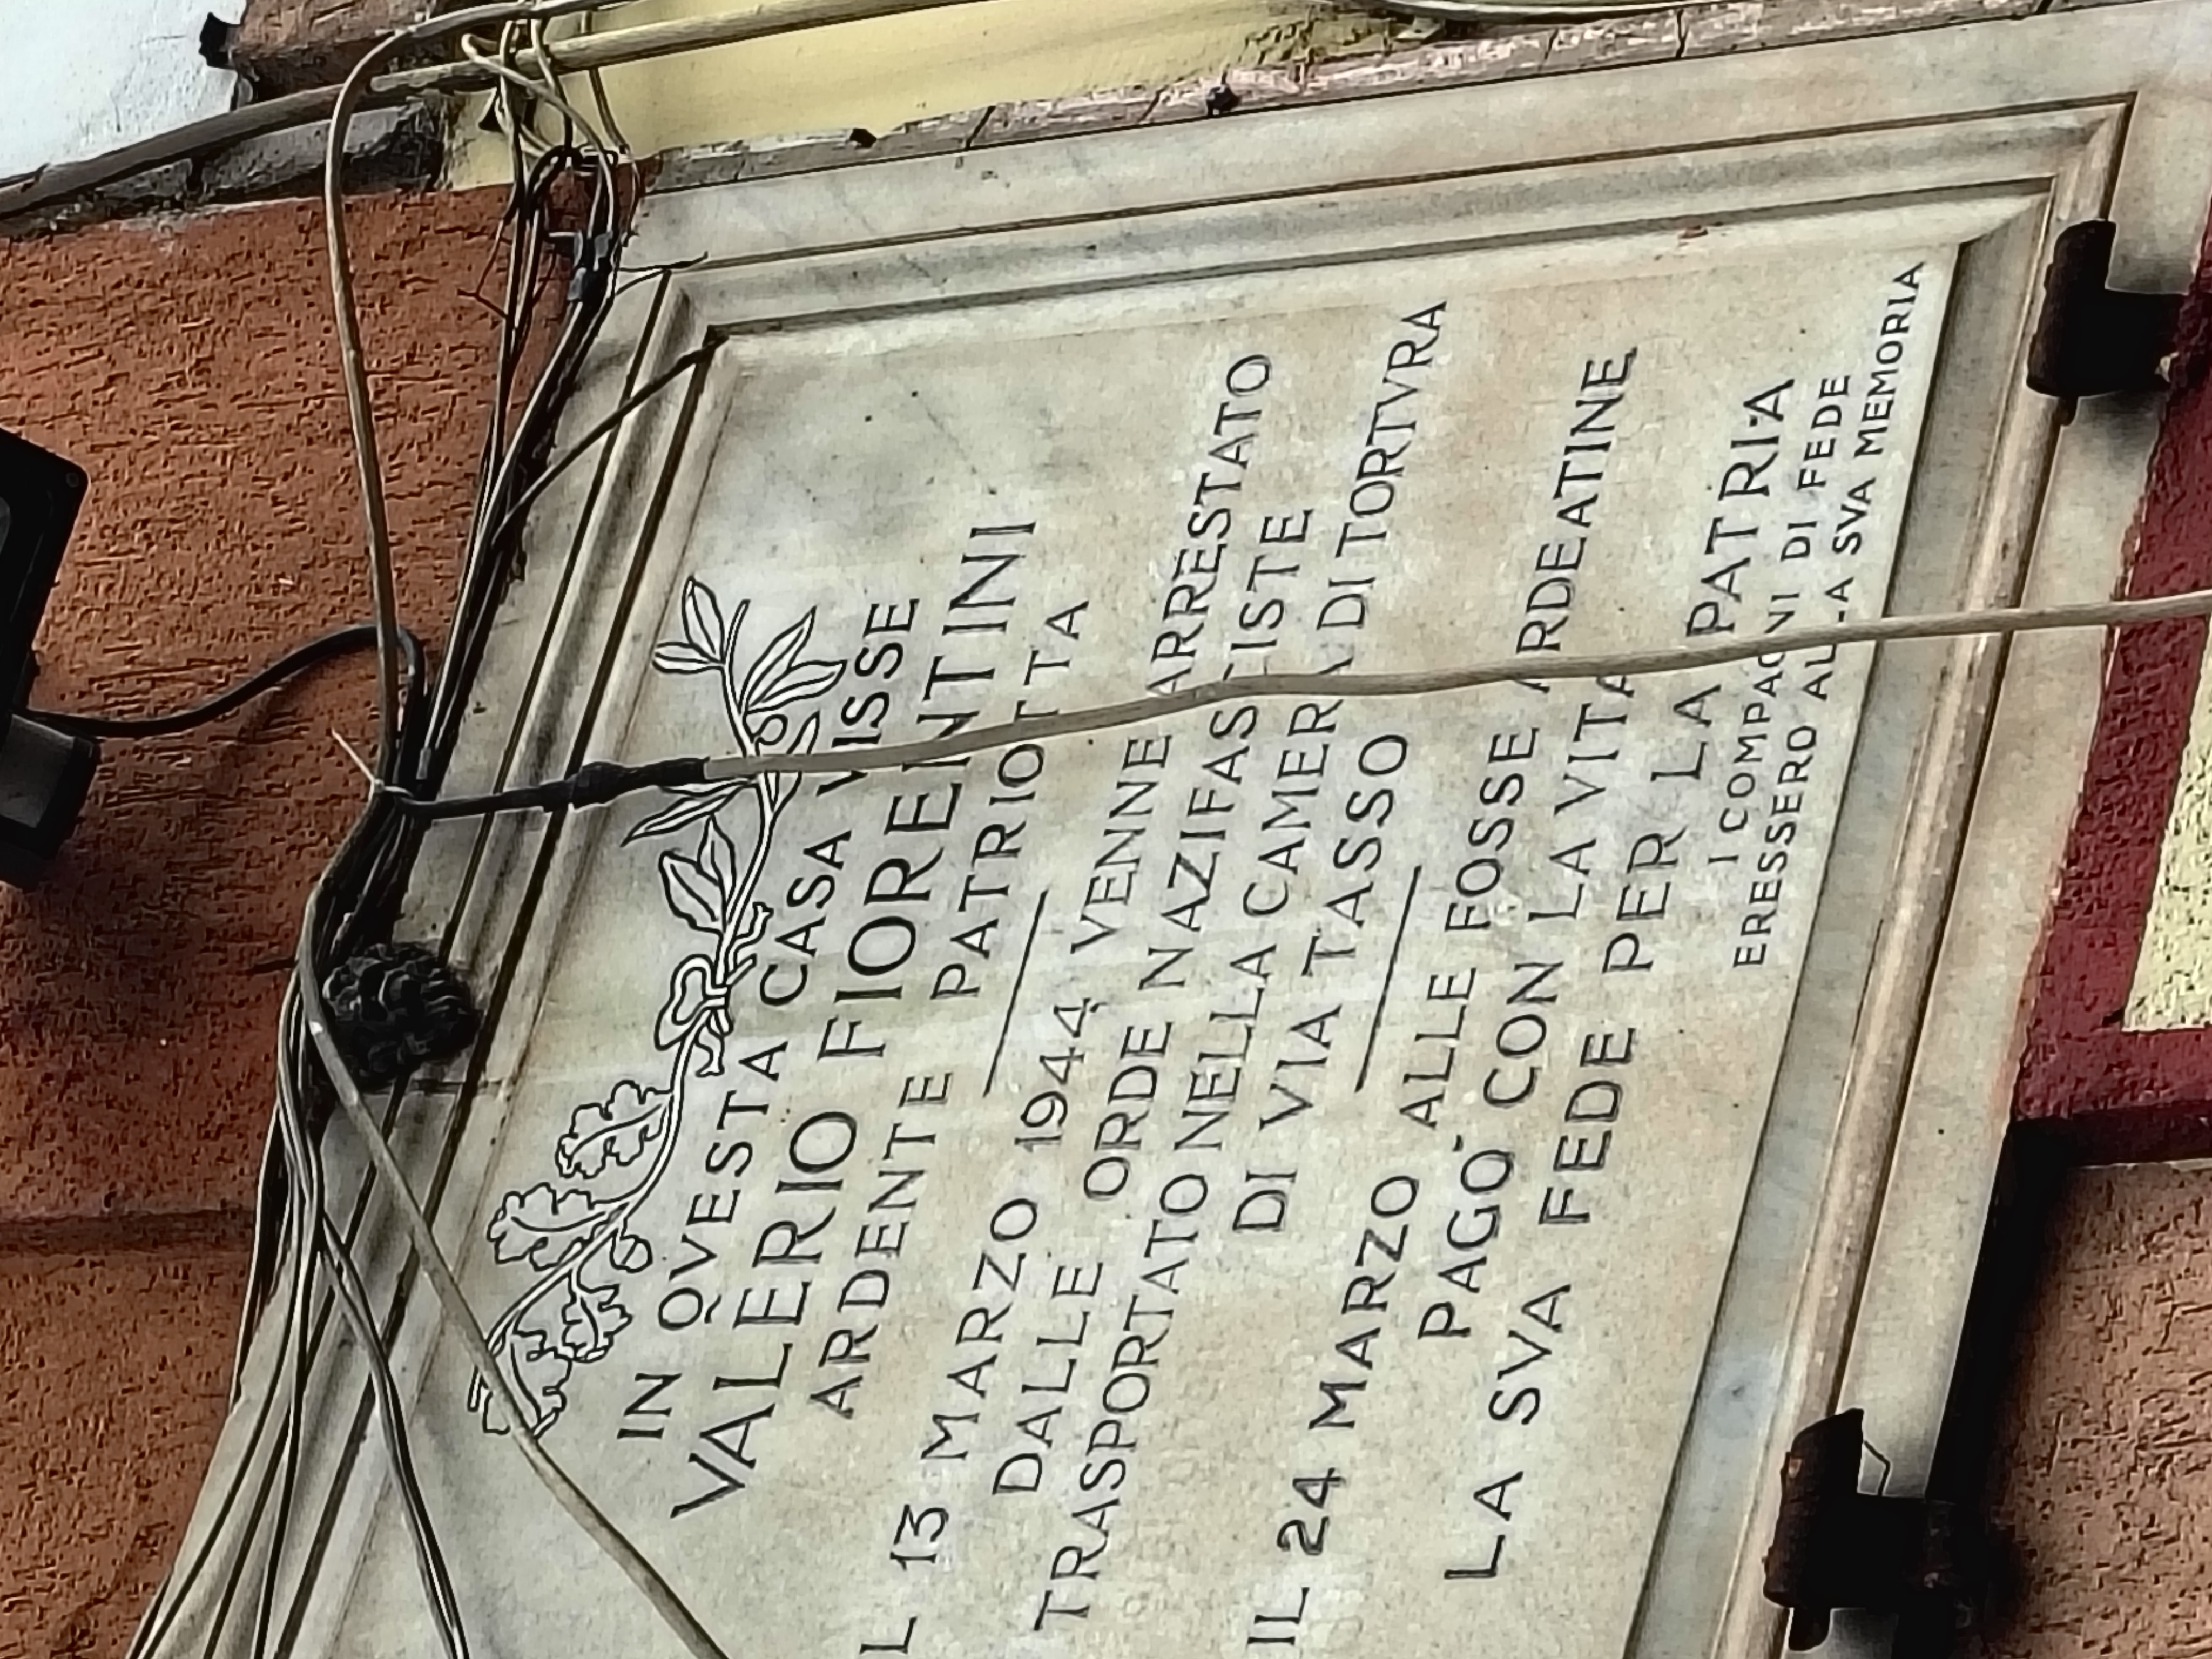 IN QVESTA CASA VISSE
VALERIO FIORENTINI
ARDENTE PATRIOTTA
IL 13 MARZO 1944 VENNE ARRESTATO
DALLE ORDE NAZIFASCISTE
TRASPORTATO NELLA CAMERA DI TORTVRA
DI VIA TASSO
IL 24 MARZO ALLE FOSSE ARDEATINE
PAGO' CON LA VITA
LA SVA FEDE PER LA PATRIA
I COMPAGNI DI FEDE
ERESSERO ALLA SVA MEMORIA